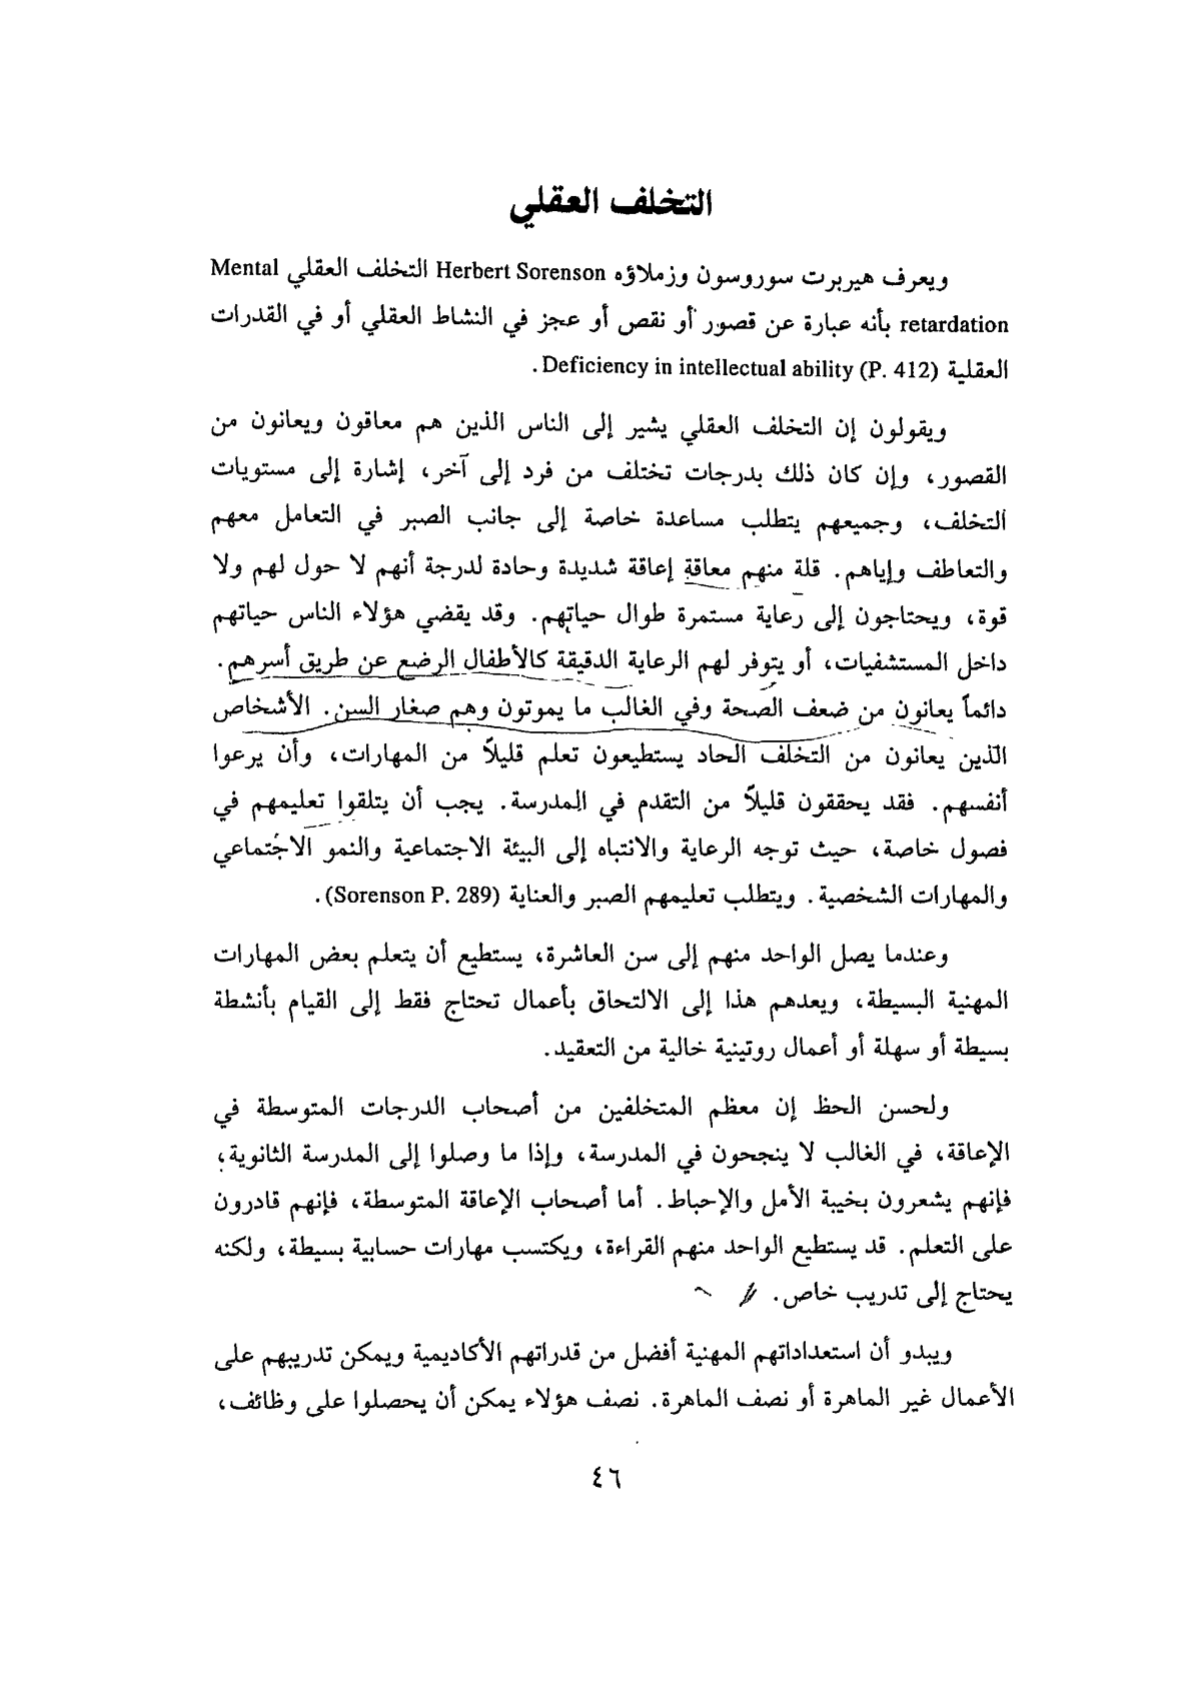 التخلف العقلي
ويعرف هيربرت سوروسون وزملاؤه Herbert Sorenson التخلف العقلي Mental
retardation بأنه عبارة عن قصور أو نقص أو عجز في النشاط العقلي أو في القدرات
العقلية Deficiency in intellectual ability (P. 412) .
ويقولون إن التخلف العقلي يشير إلى الناس الذين هم معاقون ويعانون من
القصور، وإن كان ذلك بدرجات تختلف من فرد إلى آخر، إشارة إلى مستويات
التخلف، وجميعهم يتطلب مساعدة خاصة إلى جانب الصبر في التعامل معهم
والتعاطف وإياهم. قلة منهم معاقة إعاقة شديدة وحادة لدرجة أنهم لا حول لهم ولا
قوة، ويحتاجون إلى رعاية مستمرة طوال حياتهم. وقد يقضي هؤلاء الناس حياتهم
داخل المستشفيات، أو يتوفر لهم الرعاية الدقيقة كالأطفال الرضع عن طريق أسرهم.
دائماً يعانون من ضعف الصحة وفي الغالب ما يموتون وهم صغار السن. الأشخاص
الذين يعانون من التخلف الحاد يستطيعون تعلم قليلاً من المهارات، وأن يرعوا
أنفسهم. فقد يحققون قليلاً من التقدم في المدرسة. يجب أن يتلقوا تعليمهم في
فصول خاصة، حيث توجه الرعاية والانتباه إلى البيئة الاجتماعية والنمو الاجتماعي
والمهارات الشخصية. ويتطلب تعليمهم الصبر والعناية (Sorenson P. 289).
وعندما يصل الواحد منهم إلى سن العاشرة، يستطيع أن يتعلم بعض المهارات
المهنية البسيطة، ويعدهم هذا إلى الالتحاق بأعمال تحتاج فقط إلى القيام بأنشطة
بسيطة أو سهلة أو أعمال روتينية خالية من التعقيد.
ولحسن الحظ إن معظم المتخلفين من أصحاب الدرجات المتوسطة في
الإعاقة، في الغالب لا ينجحون في المدرسة، وإذا ما وصلوا إلى المدرسة الثانوية،
فإنهم يشعرون بخيبة الأمل والإحباط. أما أصحاب الإعاقة المتوسطة، فإنهم قادرون
على التعلم. قد يستطيع الواحد منهم القراءة، ويكتسب مهارات حسابية بسيطة، ولكنه
يحتاج إلى تدريب خاص.
ويبدو أن استعداداتهم المهنية أفضل من قدراتهم الأكاديمية ويمكن تدريبهم على
الأعمال غير الماهرة أو نصف الماهرة. نصف هؤلاء يمكن أن يحصلوا على وظائف،
٤٦